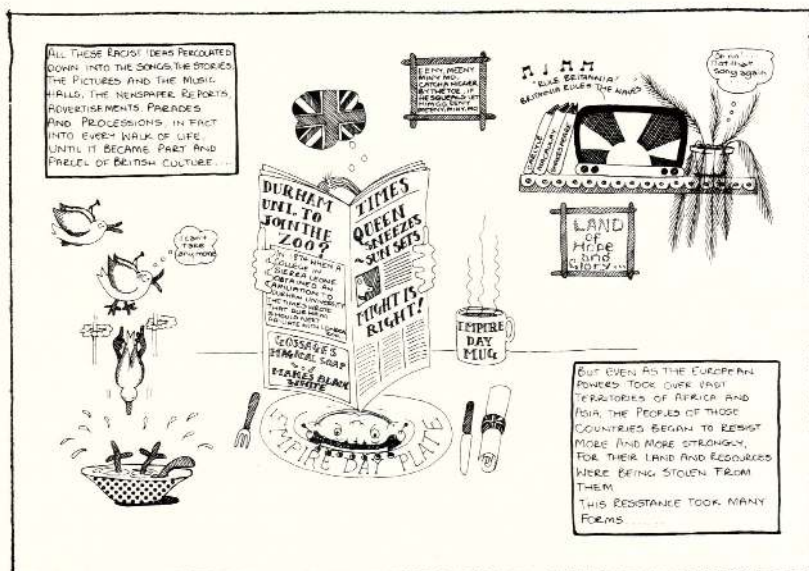 ALL THESE RACIST IDEAS PERCOLATED
DOWN INTO THE SONGS, THE STORIES,
THE PICTURES AND THE MUSIC
HALLS, THE NEWSPAPER REPORTS,
ADVERTISEMENTS, PARADES
AND PROCESSIONS, IN FACT
INTO EVERY WALK OF LIFE,
UNTIL IT BECAME PART AND
PARCEL OF BRITISH CULTURE....
EENY, MEENY
MINY MO,
CATCH A NIGGER
BY THE TOE, IF
HE SQUEALS LET
HIM GO, EENY
MEENY, MINY, MO
"RULE BRITANNIA"
BRITANNIA RULES THE WAVES
Oh no!
Not that
song again
CARLYLE
MACAULAY
SHAKESPEARE
LAND
OF
Hope
and
Glory...
I can't
take
anymore
DURHAM
UNI. TO
JOIN THE
ZOO?
IN 1876 WHEN A
COLLEGE IN
SIERRA LEONE
OBTAINED AN
AFFILIATION TO
DURHAM UNIVERSITY
THE TIMES WROTE
THAT DURHAM
SHOULD NEXT
AFFILIATE WITH LONDON
ZOO
GOSSAGES
MAGICAL SOAP
MAKES BLACK
WHITE
TIMES
QUEEN
SNEEZES
~ SUN SETS
MIGHT IS
RIGHT!
EMPIRE
DAY
MUG
EMPIRE DAY PLATE
BUT EVEN AS THE EUROPEAN
POWERS TOOK OVER VAST
TERRITORIES OF AFRICA AND
ASIA, THE PEOPLES OF THOSE
COUNTRIES BEGAN TO RESIST
MORE AND MORE STRONGLY,
FOR THEIR LAND AND RESOURCES
WERE BEING STOLEN FROM
THEM
THIS RESISTANCE TOOK MANY
FORMS........